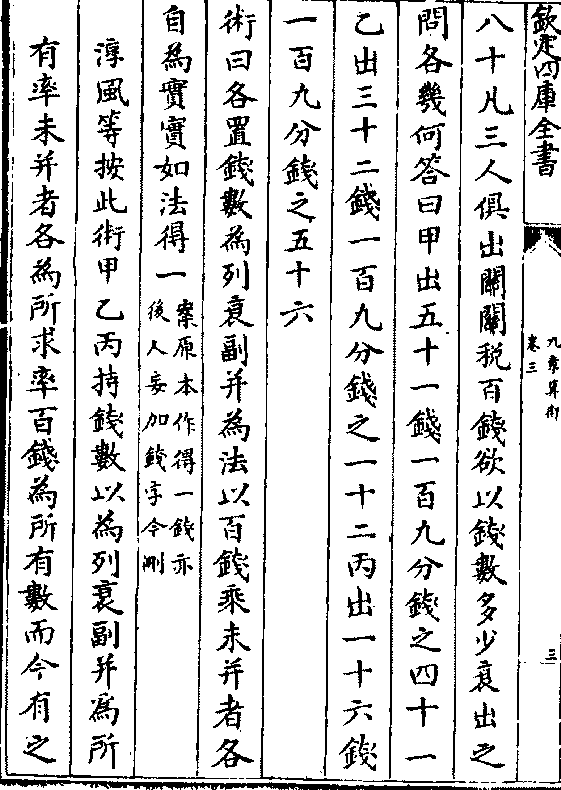 欽定四庫全書
九章算術
卷三
三
八十凡三人俱出關關税百錢欲以錢數多少衰出之
問各幾何答曰甲出五十一錢一百九分錢之四十一
乙出三十二錢一百九分錢之一十二丙出一十六錢
一百九分錢之五十六
術曰各置錢數為列衰副并為法以百錢乘未并者各
自為實實如法得一案原本作得一錢亦
後人妄加錢字今刪
淳風等按此術甲乙丙持錢數以為列衰副并為所
有率未并者各為所求率百錢為所有數而今有之